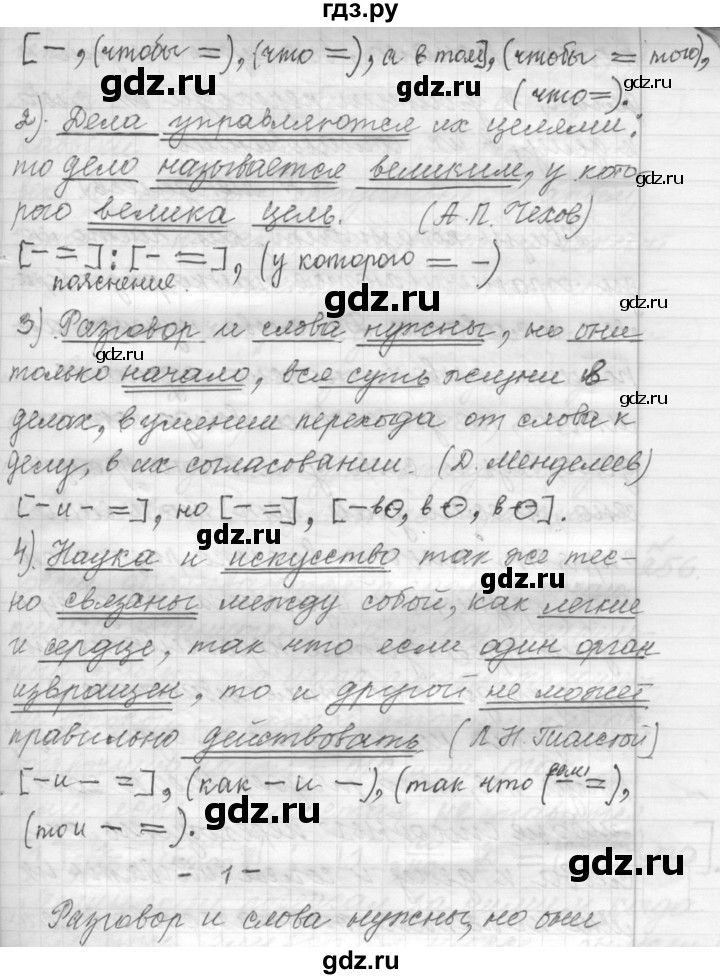 гдз.ру
[ – , (чтобы = ), (что = ), а в том], (чтобы = того),
(что = ).
2). Дела управляются их целями:
то дело называется великим, у кото-
рого велика цель. (А.П. Чехов)
[ – = ] : [ – = ], (у которого = – )
пояснение
3) Разговор и слова нужны, но они
только начало, вся суть жизни в
делах, в умении перехода от слова к
делу, в их согласовании. (Д. Менделеев)
[ – и – = ], но [ – = ], [ – в О, в О, в О].
4). Наука и искусство так же тес-
но связаны между собой, как легкие
и сердце, так что если один орган
извращен, то и другой не может
правильно действовать (Л.Н. Толстой)
[ – и – = ], (как – и – ), (так что (если – = ),
(то и – = ).
– 1 –
Разговор и слова нужны, но они
gdz.ru
gdz.ru
gdz.ru
gdz.ru
gdz.ru
gdz.ru
gdz.ru
gdz.ru
gdz.ru
gdz.ru
gdz.ru
gdz.ru
gdz.ru
gdz.ru